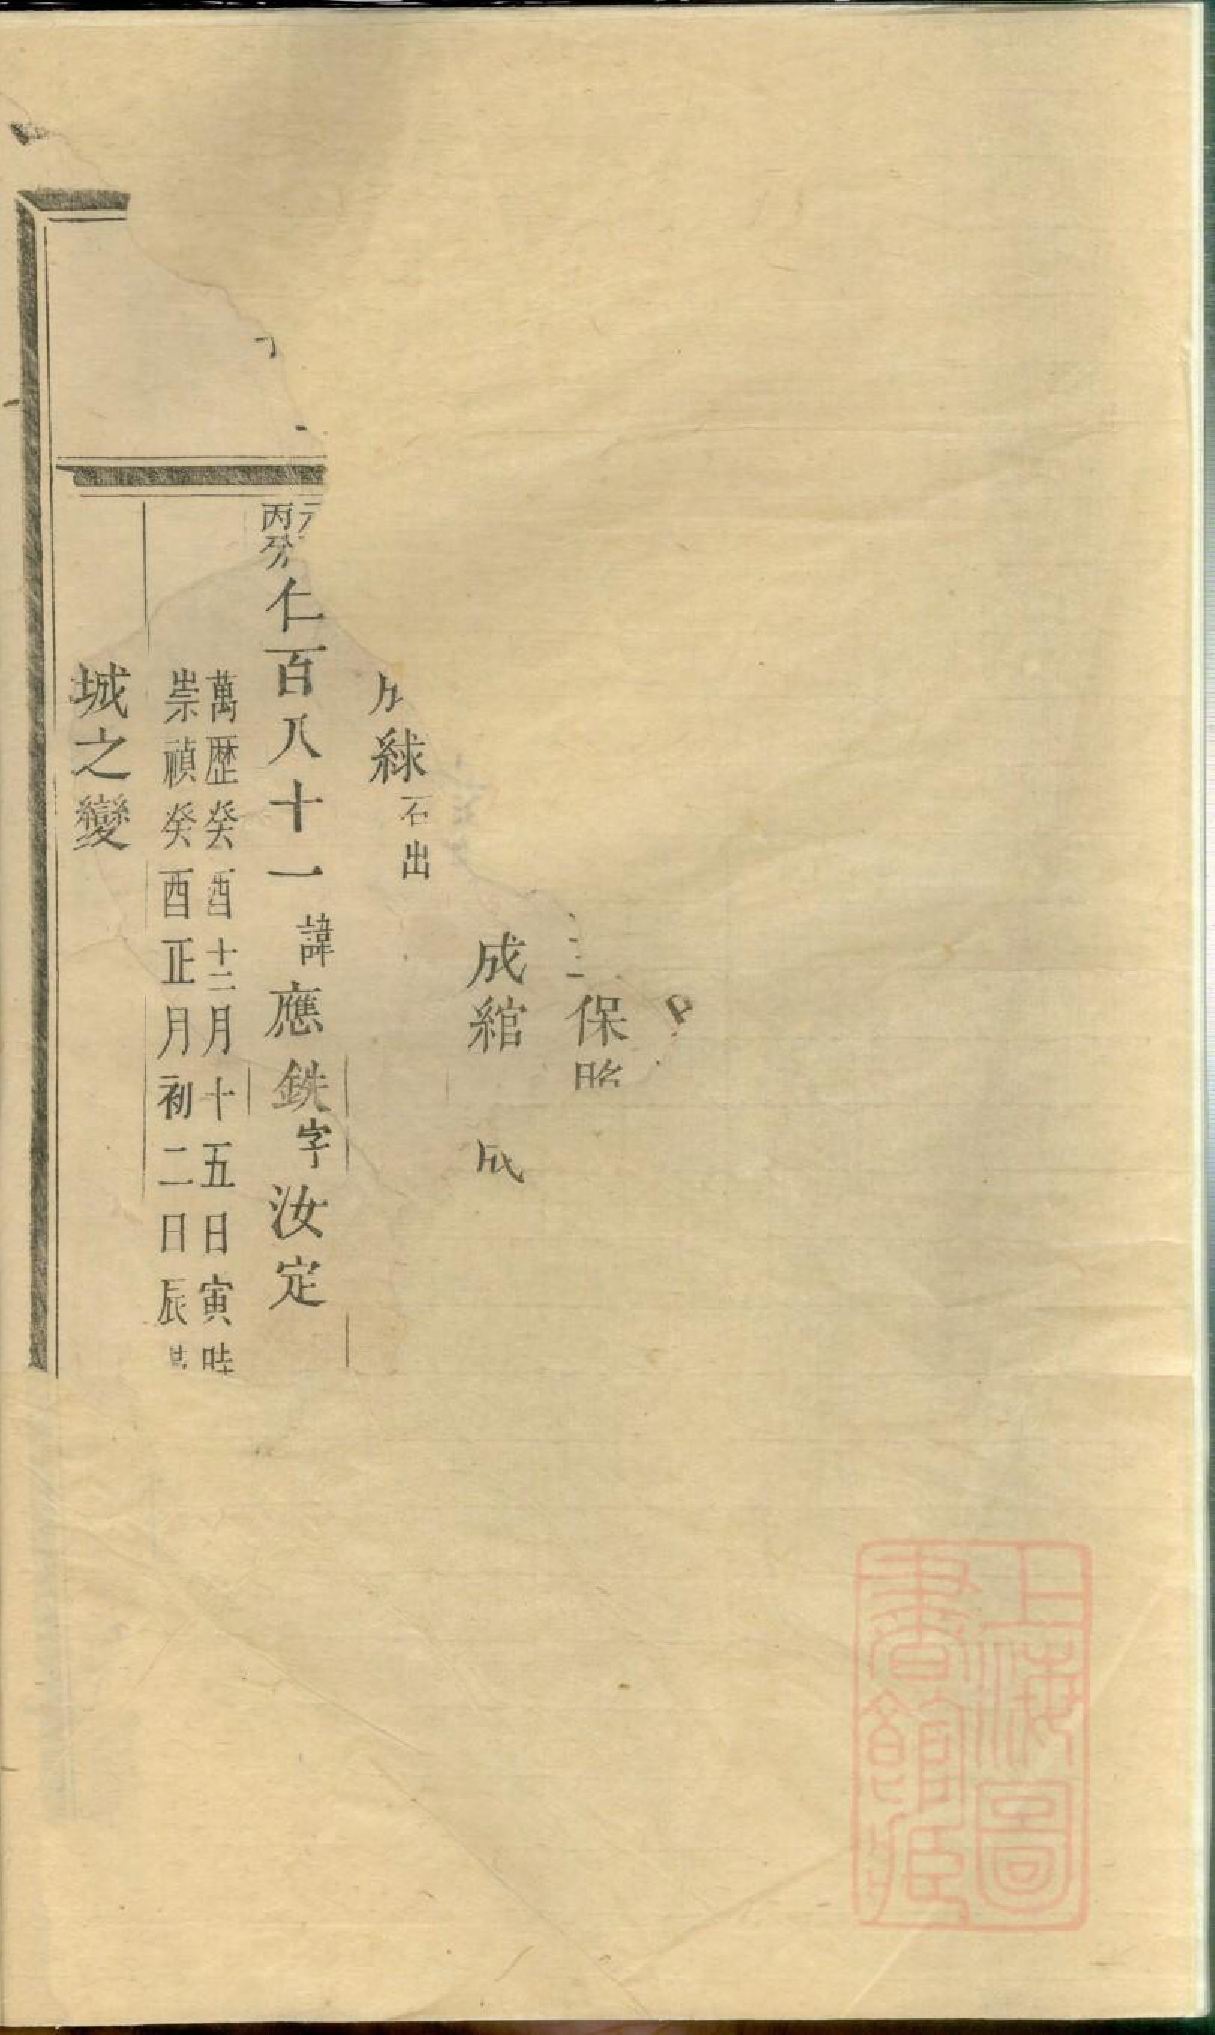 保
成綰
絿石出
丙分仁百八十一諱應銑字汝定
萬歷癸酉十二月十五日寅時
崇禎癸酉正月初二日辰
城之變
上海圖
書館藏